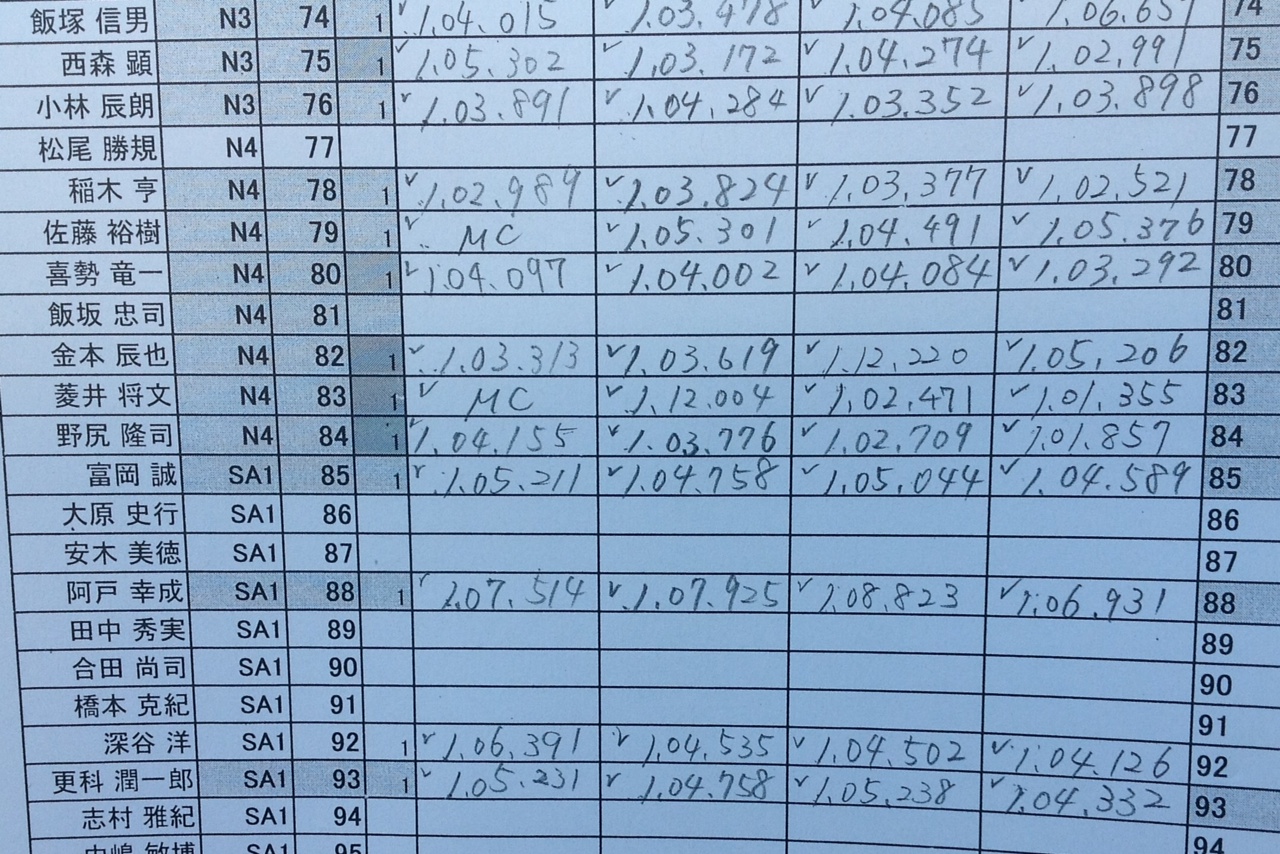 飯塚 信男 N3 74 1 ✓1.04.015 ✓1.03.478 ✓1.04.085 ✓1.06.657 74
西森 顕 N3 75 1 ✓1.05.302 ✓1.03.172 ✓1.04.274 ✓1.02.991 75
小林 辰朗 N3 76 1 ✓1.03.891 ✓1.04.284 ✓1.03.352 ✓1.03.898 76
松尾 勝規 N4 77 77
稲木 亨 N4 78 1 ✓1.02.989 ✓1.03.824 ✓1.03.377 ✓1.02.521 78
佐藤 裕樹 N4 79 1 ✓MC ✓1.05.301 ✓1.04.491 ✓1.05.376 79
喜勢 竜一 N4 80 1 ✓1.04.097 ✓1.04.002 ✓1.04.084 ✓1.03.292 80
飯坂 忠司 N4 81 81
金本 辰也 N4 82 1 ✓1.03.313 ✓1.03.619 ✓1.12.220 ✓1.05.206 82
菱井 将文 N4 83 1 ✓MC ✓1.12.004 ✓1.02.471 ✓1.01.355 83
野尻 隆司 N4 84 1 ✓1.04.155 ✓1.03.776 ✓1.02.709 ✓1.01.857 84
富岡 誠 SA1 85 1 ✓1.05.211 ✓1.04.758 ✓1.05.044 ✓1.04.589 85
大原 史行 SA1 86 86
安木 美徳 SA1 87 87
阿戸 幸成 SA1 88 1 ✓1.07.514 ✓1.07.925 ✓1.08.823 ✓1.06.931 88
田中 秀実 SA1 89 89
合田 尚司 SA1 90 90
橋本 克紀 SA1 91 91
深谷 洋 SA1 92 1 ✓1.06.391 ✓1.04.535 ✓1.04.502 ✓1.04.126 92
更科 潤一郎 SA1 93 1 ✓1.05.231 ✓1.04.758 ✓1.05.238 ✓1.04.332 93
志村 雅紀 SA1 94 94
SA1 95